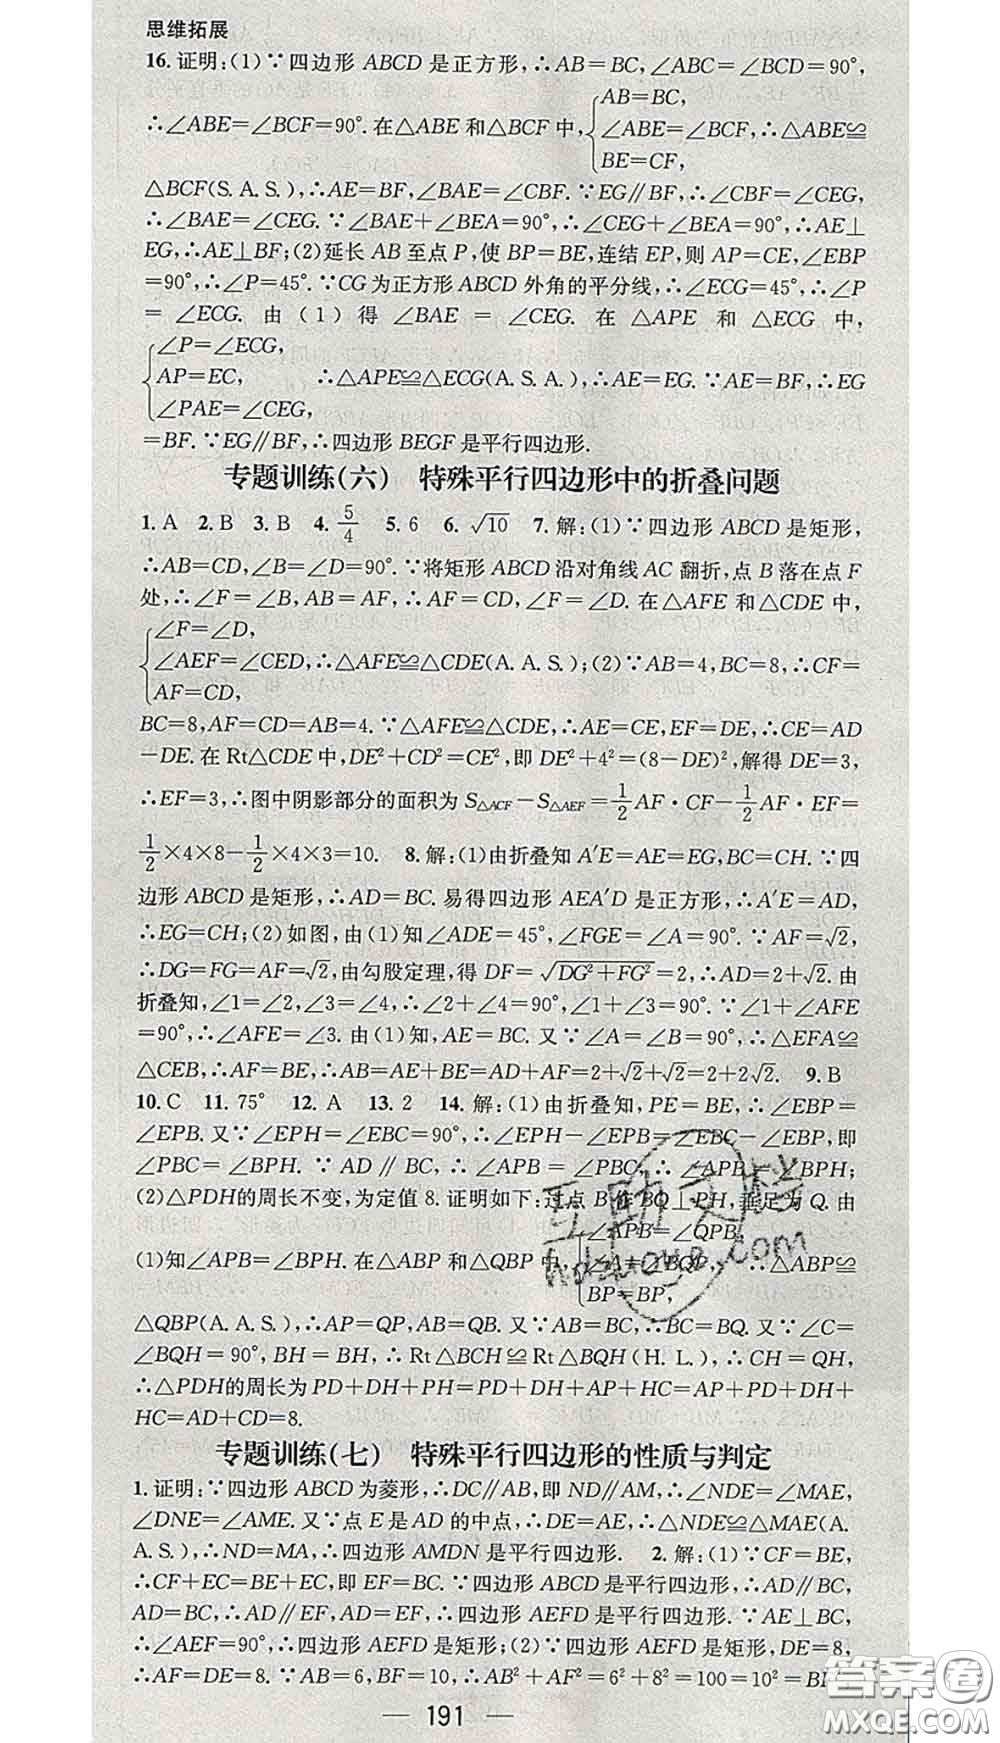 思维拓展
16. 证明:(1)∵四边形 ABCD 是正方形,∴AB=BC,∠ABC=∠BCD=90°,
AB=BC,
∴∠ABE=∠BCF=90°. 在△ABE 和△BCF 中, ∠ABE=∠BCF, ∴△ABE≌
BE=CF,
△BCF(S. A. S.),∴AE=BF,∠BAE=∠CBF. ∵EG∥BF,∴∠CBF=∠CEG,
∴∠BAE=∠CEG. ∵∠BAE+∠BEA=90°,∴∠CEG+∠BEA=90°,∴AE⊥
EG,∴AE⊥BF;(2)延长 AB 至点 P,使 BP=BE,连结 EP,则 AP=CE,∠EBP
=90°,∴∠P=45°. ∵CG 为正方形 ABCD 外角的平分线,∴∠ECG=45°,∴∠P
=∠ECG. 由(1)得∠BAE=∠CEG. 在△APE 和△ECG 中,
∠P=∠ECG,
AP=EC, ∴△APE≌△ECG(A. S. A.),∴AE=EG. ∵AE=BF,∴EG
∠PAE=∠CEG,
=BF. ∵EG∥BF,∴四边形 BEGF 是平行四边形.
专题训练(六) 特殊平行四边形中的折叠问题
1. A 2. B 3. B 4. 5/4 5. 6 6. √10 7. 解:(1)∵四边形 ABCD 是矩形,
∴AB=CD,∠B=∠D=90°. ∵将矩形 ABCD 沿对角线 AC 翻折,点 B 落在点 F
处,∴∠F=∠B,AB=AF,∴AF=CD,∠F=∠D. 在△AFE 和△CDE 中,
∠F=∠D,
∠AEF=∠CED, ∴△AFE≌△CDE(A. A. S.);(2)∵AB=4,BC=8,∴CF=
AF=CD,
BC=8,AF=CD=AB=4. ∵△AFE≌△CDE,∴AE=CE,EF=DE,∴CE=AD
-DE. 在 Rt△CDE 中,DE²+CD²=CE²,即 DE²+4²=(8-DE)²,解得 DE=3,
∴EF=3,∴图中阴影部分的面积为 S△ACF-S△AEF=1/2 AF·CF-1/2 AF·EF=
1/2×4×8-1/2×4×3=10. 8. 解:(1)由折叠知 A′E=AE=EG,BC=CH. ∵四
边形 ABCD 是矩形,∴AD=BC. 易得四边形 AEA′D 是正方形,∴A′E=AD,
∴EG=CH;(2)如图,由(1)知∠ADE=45°,∠FGE=∠A=90°. ∵AF=√2,
∴DG=FG=AF=√2,由勾股定理,得 DF=√DG²+FG²=2,∴AD=2+√2. 由
折叠知,∠1=∠2,∠3=∠4,∴∠2+∠4=90°,∠1+∠3=90°. ∵∠1+∠AFE
=90°,∴∠AFE=∠3. 由(1)知,AE=BC. 又∵∠A=∠B=90°,∴△EFA≌
△CEB,∴AF=BE,∴AB=AE+BE=AD+AF=2+√2+√2=2+2√2. 9. B
10. C 11. 75° 12. A 13. 2 14. 解:(1)由折叠知,PE=BE,∴∠EBP=
∠EPB. 又∵∠EPH=∠EBC=90°,∴∠EPH-∠EPB=∠EBC-∠EBP,即
∠PBC=∠BPH. ∵AD∥BC,∴∠APB=∠PBC,∴∠APB=∠BPH;
(2)△PDH的周长不变,为定值 8. 证明如下:过点 B 作 BQ⊥PH,垂足为 Q. 由
∠APB=∠QPB,
(1)知∠APB=∠BPH. 在△ABP 和△QBP 中, ∠A=∠BQP, ∴△ABP≌
BP=BP,
△QBP(A. A. S.),∴AP=QP,AB=QB. 又∵AB=BC,∴BC=BQ. 又∵∠C=
∠BQH=90°,BH=BH,∴Rt△BCH≌Rt△BQH(H. L.),∴CH=QH,
∴△PDH的周长为 PD+DH+PH=PD+DH+AP+HC=AP+PD+DH+
HC=AD+CD=8.
专题训练(七) 特殊平行四边形的性质与判定
1. 证明:∵四边形 ABCD 为菱形,∴DC∥AB,即 ND∥AM,∴∠NDE=∠MAE,
∠DNE=∠AME. 又∵点 E 是 AD 的中点,∴DE=AE,∴△NDE≌△MAE(A.
A. S.),∴ND=MA,∴四边形 AMDN 是平行四边形. 2. 解:(1)∵CF=BE,
∴CF+EC=BE+EC,即 EF=BC. ∵四边形 ABCD 是平行四边形,∴AD∥BC,
AD=BC,∴AD∥EF,AD=EF,∴四边形 AEFD 是平行四边形. ∵AE⊥BC,
∴∠AEF=90°,∴四边形 AEFD 是矩形;(2)∵四边形 AEFD 是矩形,DE=8,
∴AF=DE=8. ∵AB=6,BF=10,∴AB²+AF²=6²+8²=100=10²=
— 191 —
互助文档
hdzuoye.com
答案圈
MXQE.COM